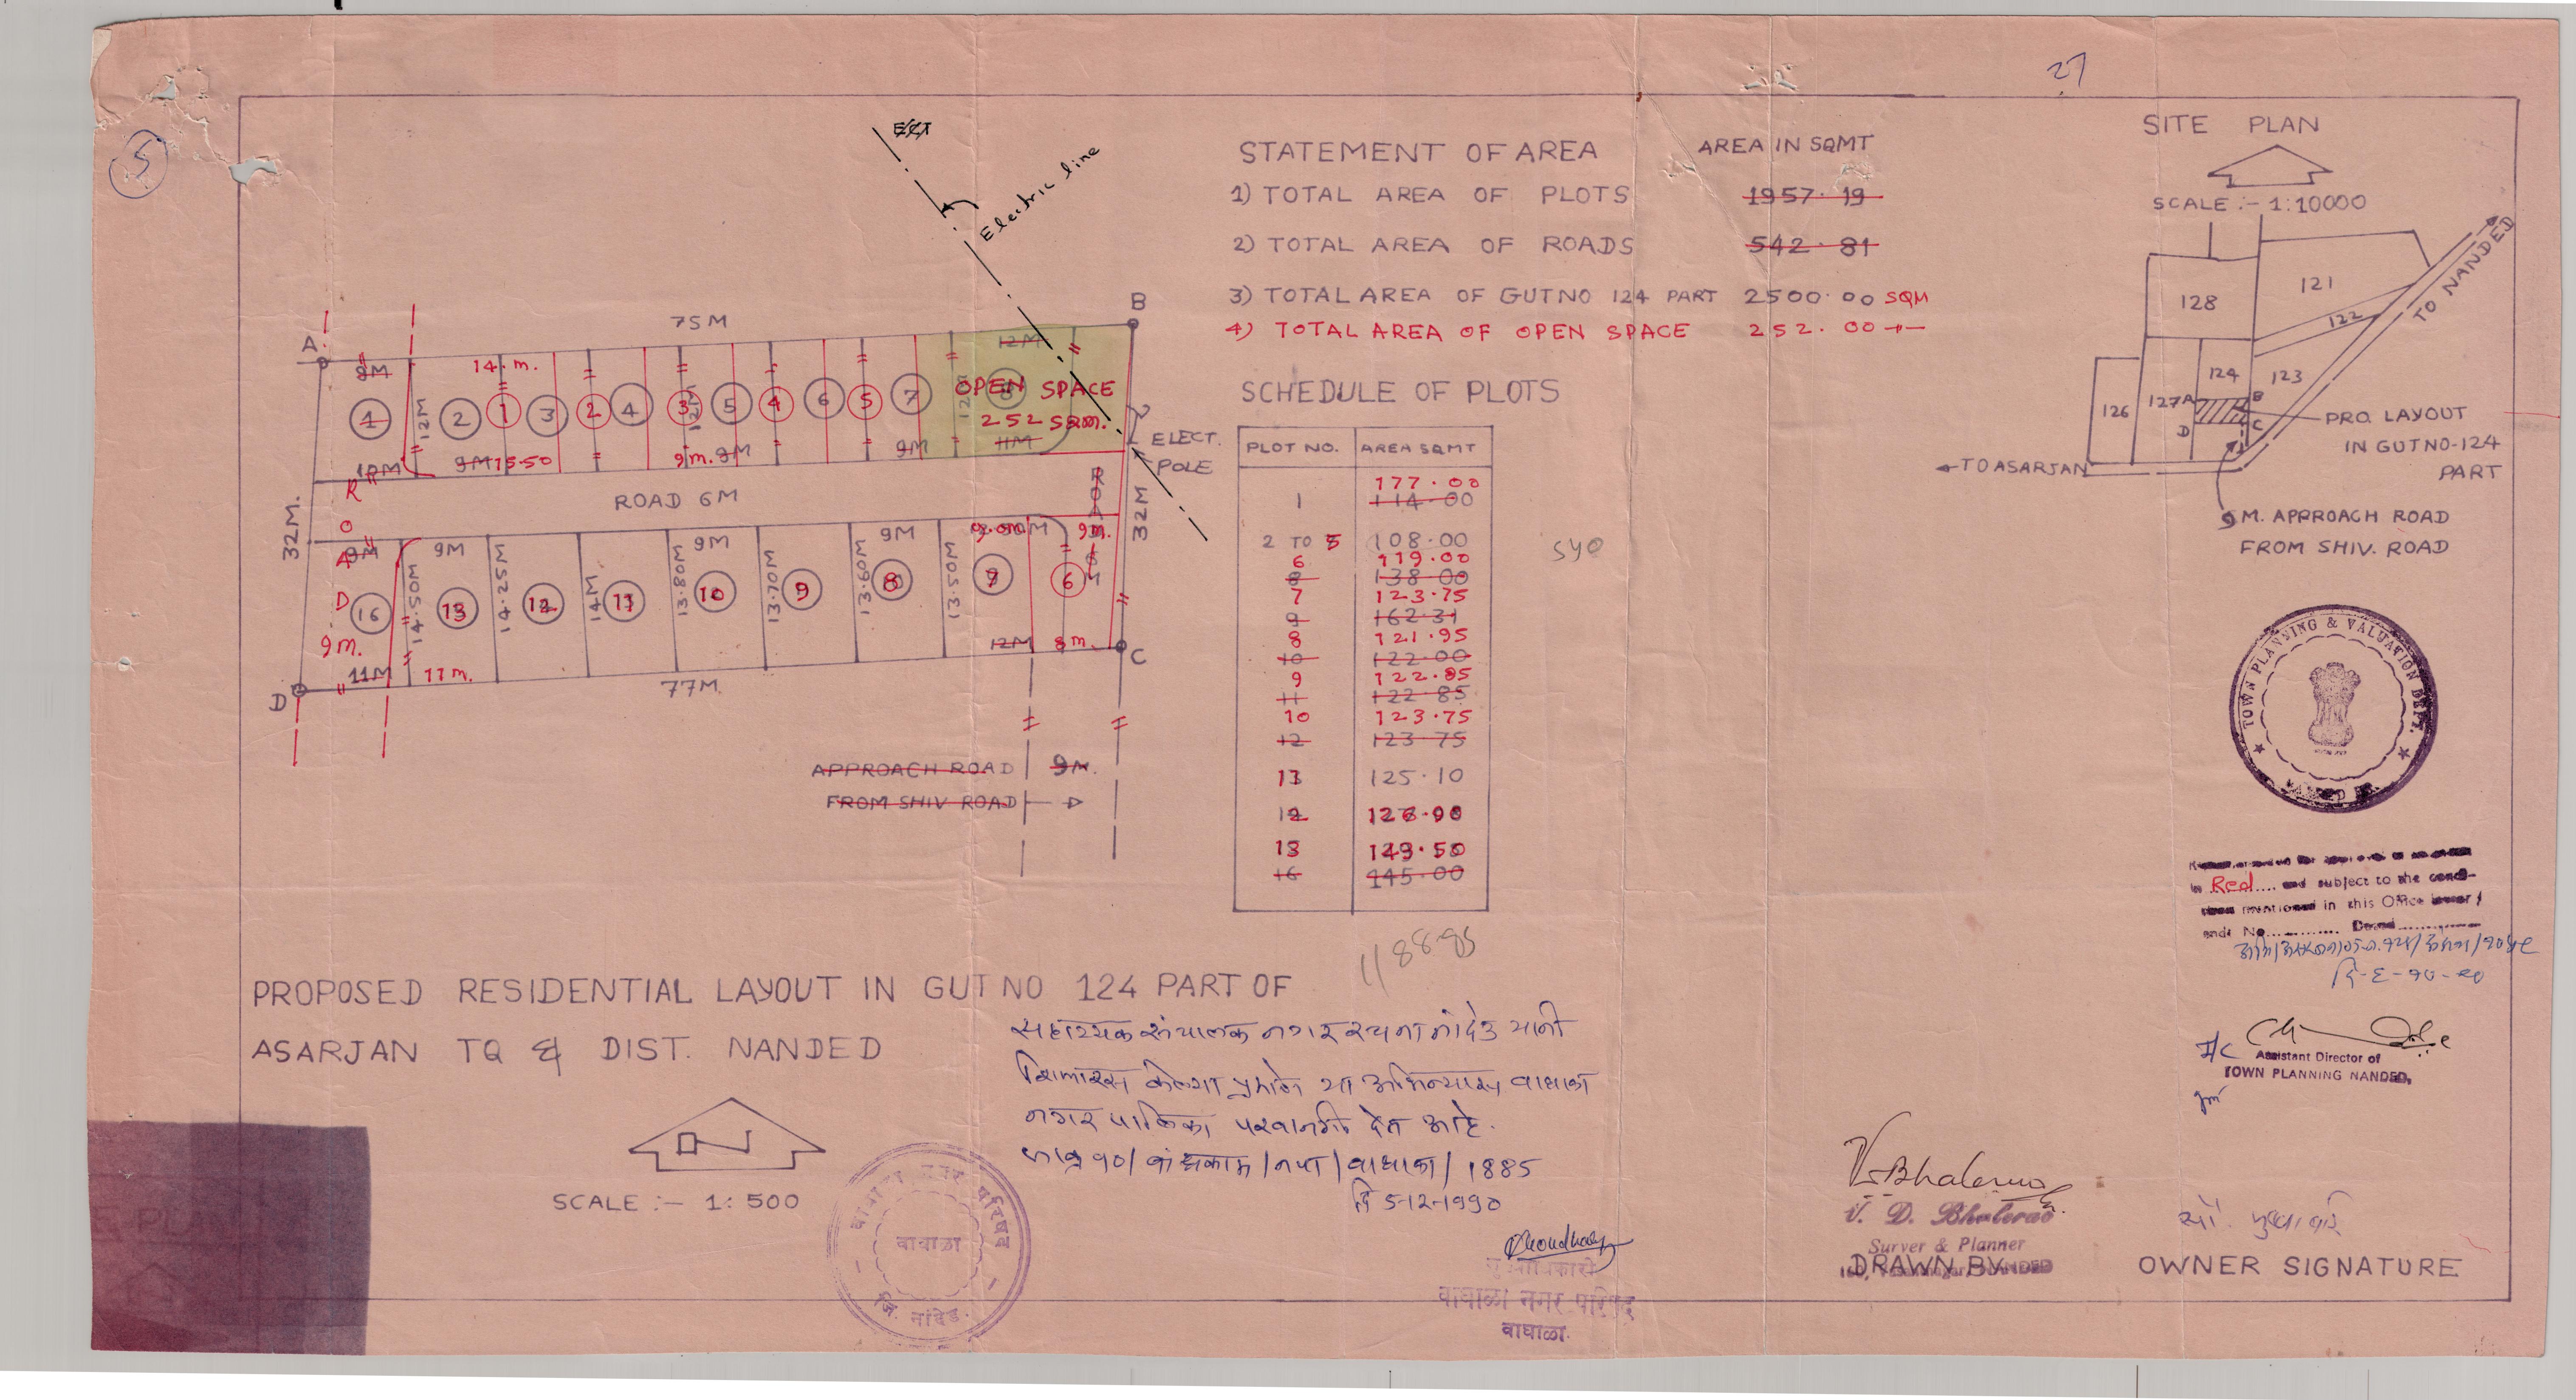 27
5
SITE PLAN
SCALE :- 1:10000
TO NANDED
121
128
122
124
123
126
127
A
B
C
D
PRO. LAYOUT
IN GUTNO-124
PART
TO ASARJAN
9M. APPROACH ROAD
FROM SHIV. ROAD
STATEMENT OF AREA AREA IN SQMT
1) TOTAL AREA OF PLOTS 1957.19
2) TOTAL AREA OF ROADS 542.81
3) TOTAL AREA OF GUTNO 124 PART 2500.00 SQM
4) TOTAL AREA OF OPEN SPACE 252.00 -"-
SCHEDULE OF PLOTS
PLOT NO. AREA SQMT
177.00
1 114.00
2 TO 5 108.00
6 119.00
8 138.00
7 123.75
9 162.31
8 121.95
10 122.00
9 122.85
11 122.85
10 123.75
12 123.75
11 125.10
12 126.90
13 149.50
16 145.00
540
1188.85
Electric line
A
B
75M
9M 14.m. 12M
1 2 1 3 2 4 3 5 4 6 5 7 8
12M 12M 12M
OPEN SPACE
252 SQM.
10M 9M 15.50 9m. 9M 9M 11M
ELECT.
POLE
32M.
ROAD 6M
ROAD
32M
ROAD
9M 9M 9M 9M 9.0m 9m.
14.50M 14.25M 14M 13.80M 13.70M 13.60M 13.50M
16 13 12 11 10 9 8 7 6
9m.
11M 11m. 12M 8m.
D
77M.
C
APPROACH ROAD 9M.
FROM SHIV ROAD
PROPOSED RESIDENTIAL LAYOUT IN GUT NO 124 PART OF
ASARJAN TQ & DIST. NANDED
N
SCALE :- 1:500
सहाय्यक संचालक नगर रचना नांदेड यांनी
शिफारस केल्या प्रमाणे या अभिन्यास वाघाळा
नगर पालिका परवानगी देत आहे.
बांधकाम/नपा/वाघाळा/1885
दि 5-12-1990
वाघाळा नगर परिषद
वाघाळा
जि. नांदेड.
वाघाळा नगर परिषद
वाघाळा.
TOWN PLANNING & VALUATION DEPT.
NANDED
in Red.... and subject to the condi-
mentioned in this Office letter/
endt No............ Dated............
दि-६-१०-९०
I/C
Assistant Director of
TOWN PLANNING NANDED.
V. Bhalerao
V. D. Bhalerao
Surver & Planner
DRAWN BY
OWNER SIGNATURE